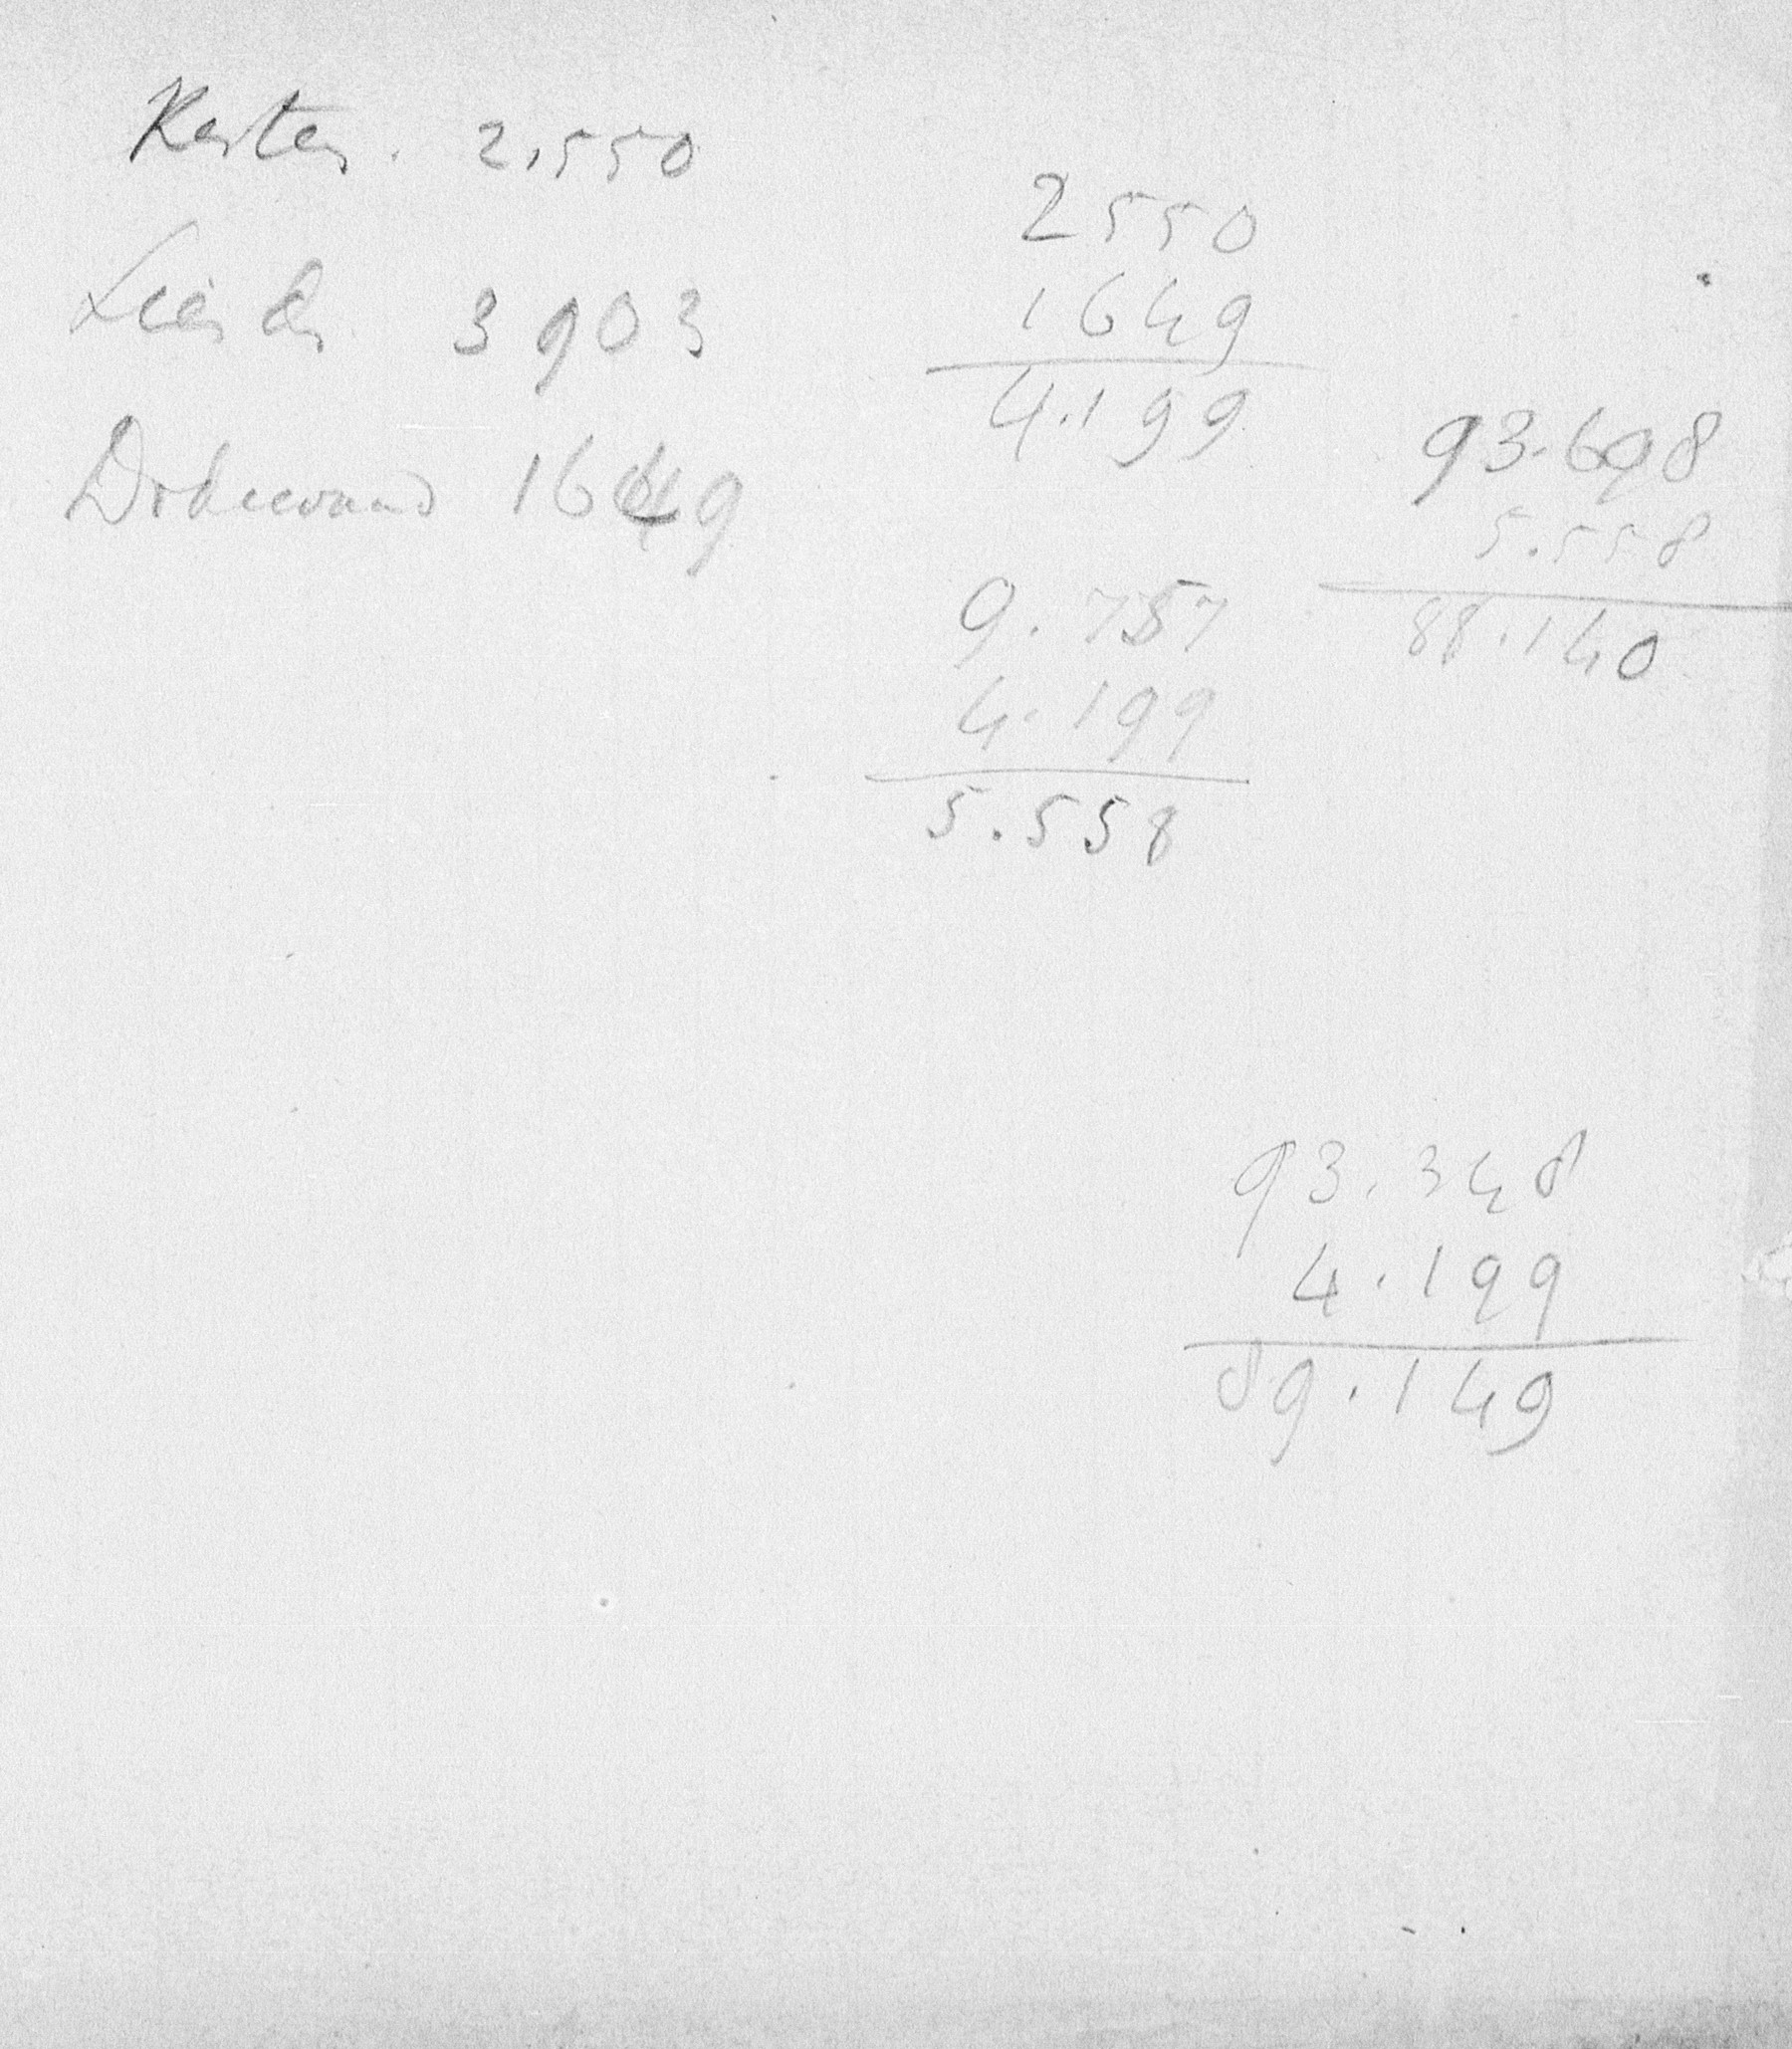 Kesteren. 2.550
Lienden 3903
Dodewaard 1649
2550
1649
4.199
9.757
4.199
5.558
93.698
5.558
88.140
93.348
4.199
89.149